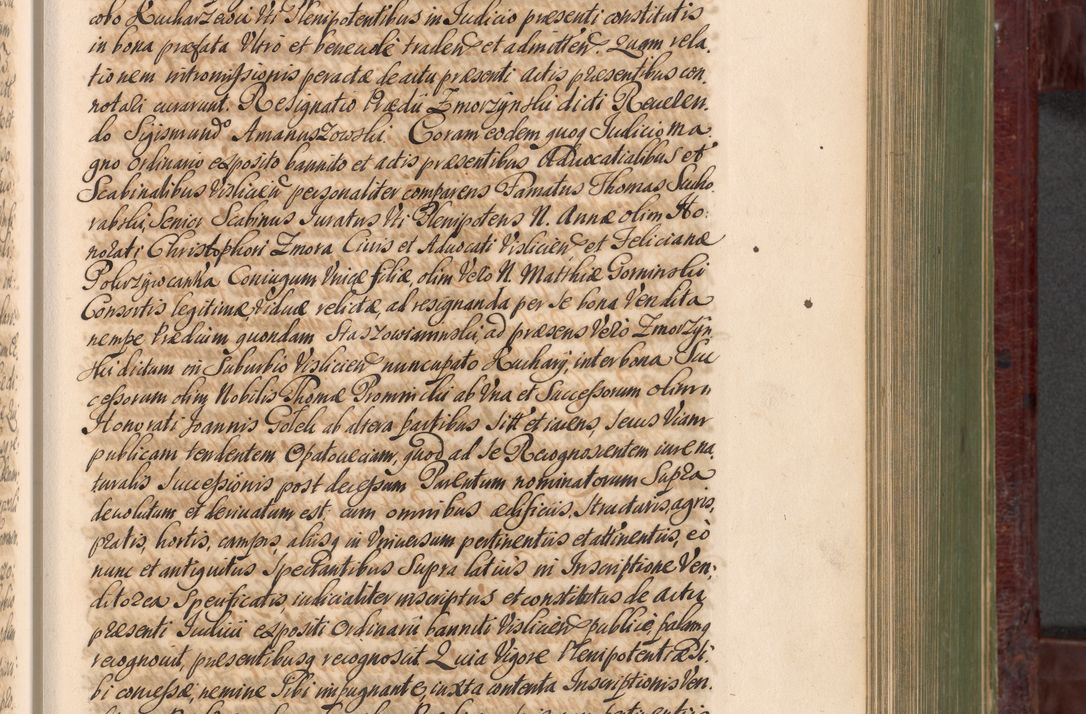 cobo Kucharzewi Uti Plenipotentibus in Judicio præsenti constitutis
in bona præfata Ultro et benevolè traden et admitten. Quam rela
tionem intromissionis peractæ de actu præsenti actis præsentibus con
notari curarunt. Resignatio Prædii Zmorzÿnskii dicti Reveren
do Sigismundo Amanuszowski. Coram eodem quoq Judicio ma
gno ordinario exposito bannito et actis præsentibus Advocatialibus et
Scabinalibus Vislicien personaliter comparens Famatus Thomas Sucho
rabski, Senior Scabinus Juratus Uti Plenipotens N. Annæ olim Ho
norati Christophori Zmora Civis et Advocati Vislicien et Felicianæ
Pokrzywcanka Coniugum Unicæ filiæ, olim Vero N. Matthiæ Gorninskii
Consortis legitimæ, Viduæ relictæ, ad resignanda per se bona Vendita
nempe Prædium quondam Staszowianinskii, ad præsens Vero Zmorzÿn
skii dictum in Suburbio Vislicien nuncupato Kucharÿ, inter bona Suc
cessorum olim Nobilis Thomæ Promnickii ab Una et Successorum olim
Honorati Joannis Golek ab altera partibus Sitt et iacens, secus Viam
publicam tendentem Opatoveciam, quod ad se Recognoscentem iure na
turalis Successionis post decessum Parentum nominatorum Supra
devolutum et derivatum est cum omnibus ædificiis, Structuris, agris,
pratis, hortis, campis, aliisq in Universum pertinentiis et attinentiis, eò
nunc et antiquitus Spectantibus Supra latius in Inscriptione Ven
ditorea Specificatis, iudicialiter inscriptus et constitutus de actu
præsenti Judicii expositi Ordinarii banniti Vislicien publicè palamq
recognovit, præsentibusq recognoscit. Quia Vigore Plenipotentiæ Si
bi concessæ, nemine Sibi impugnante, iuxta contenta Inscriptionis Ven